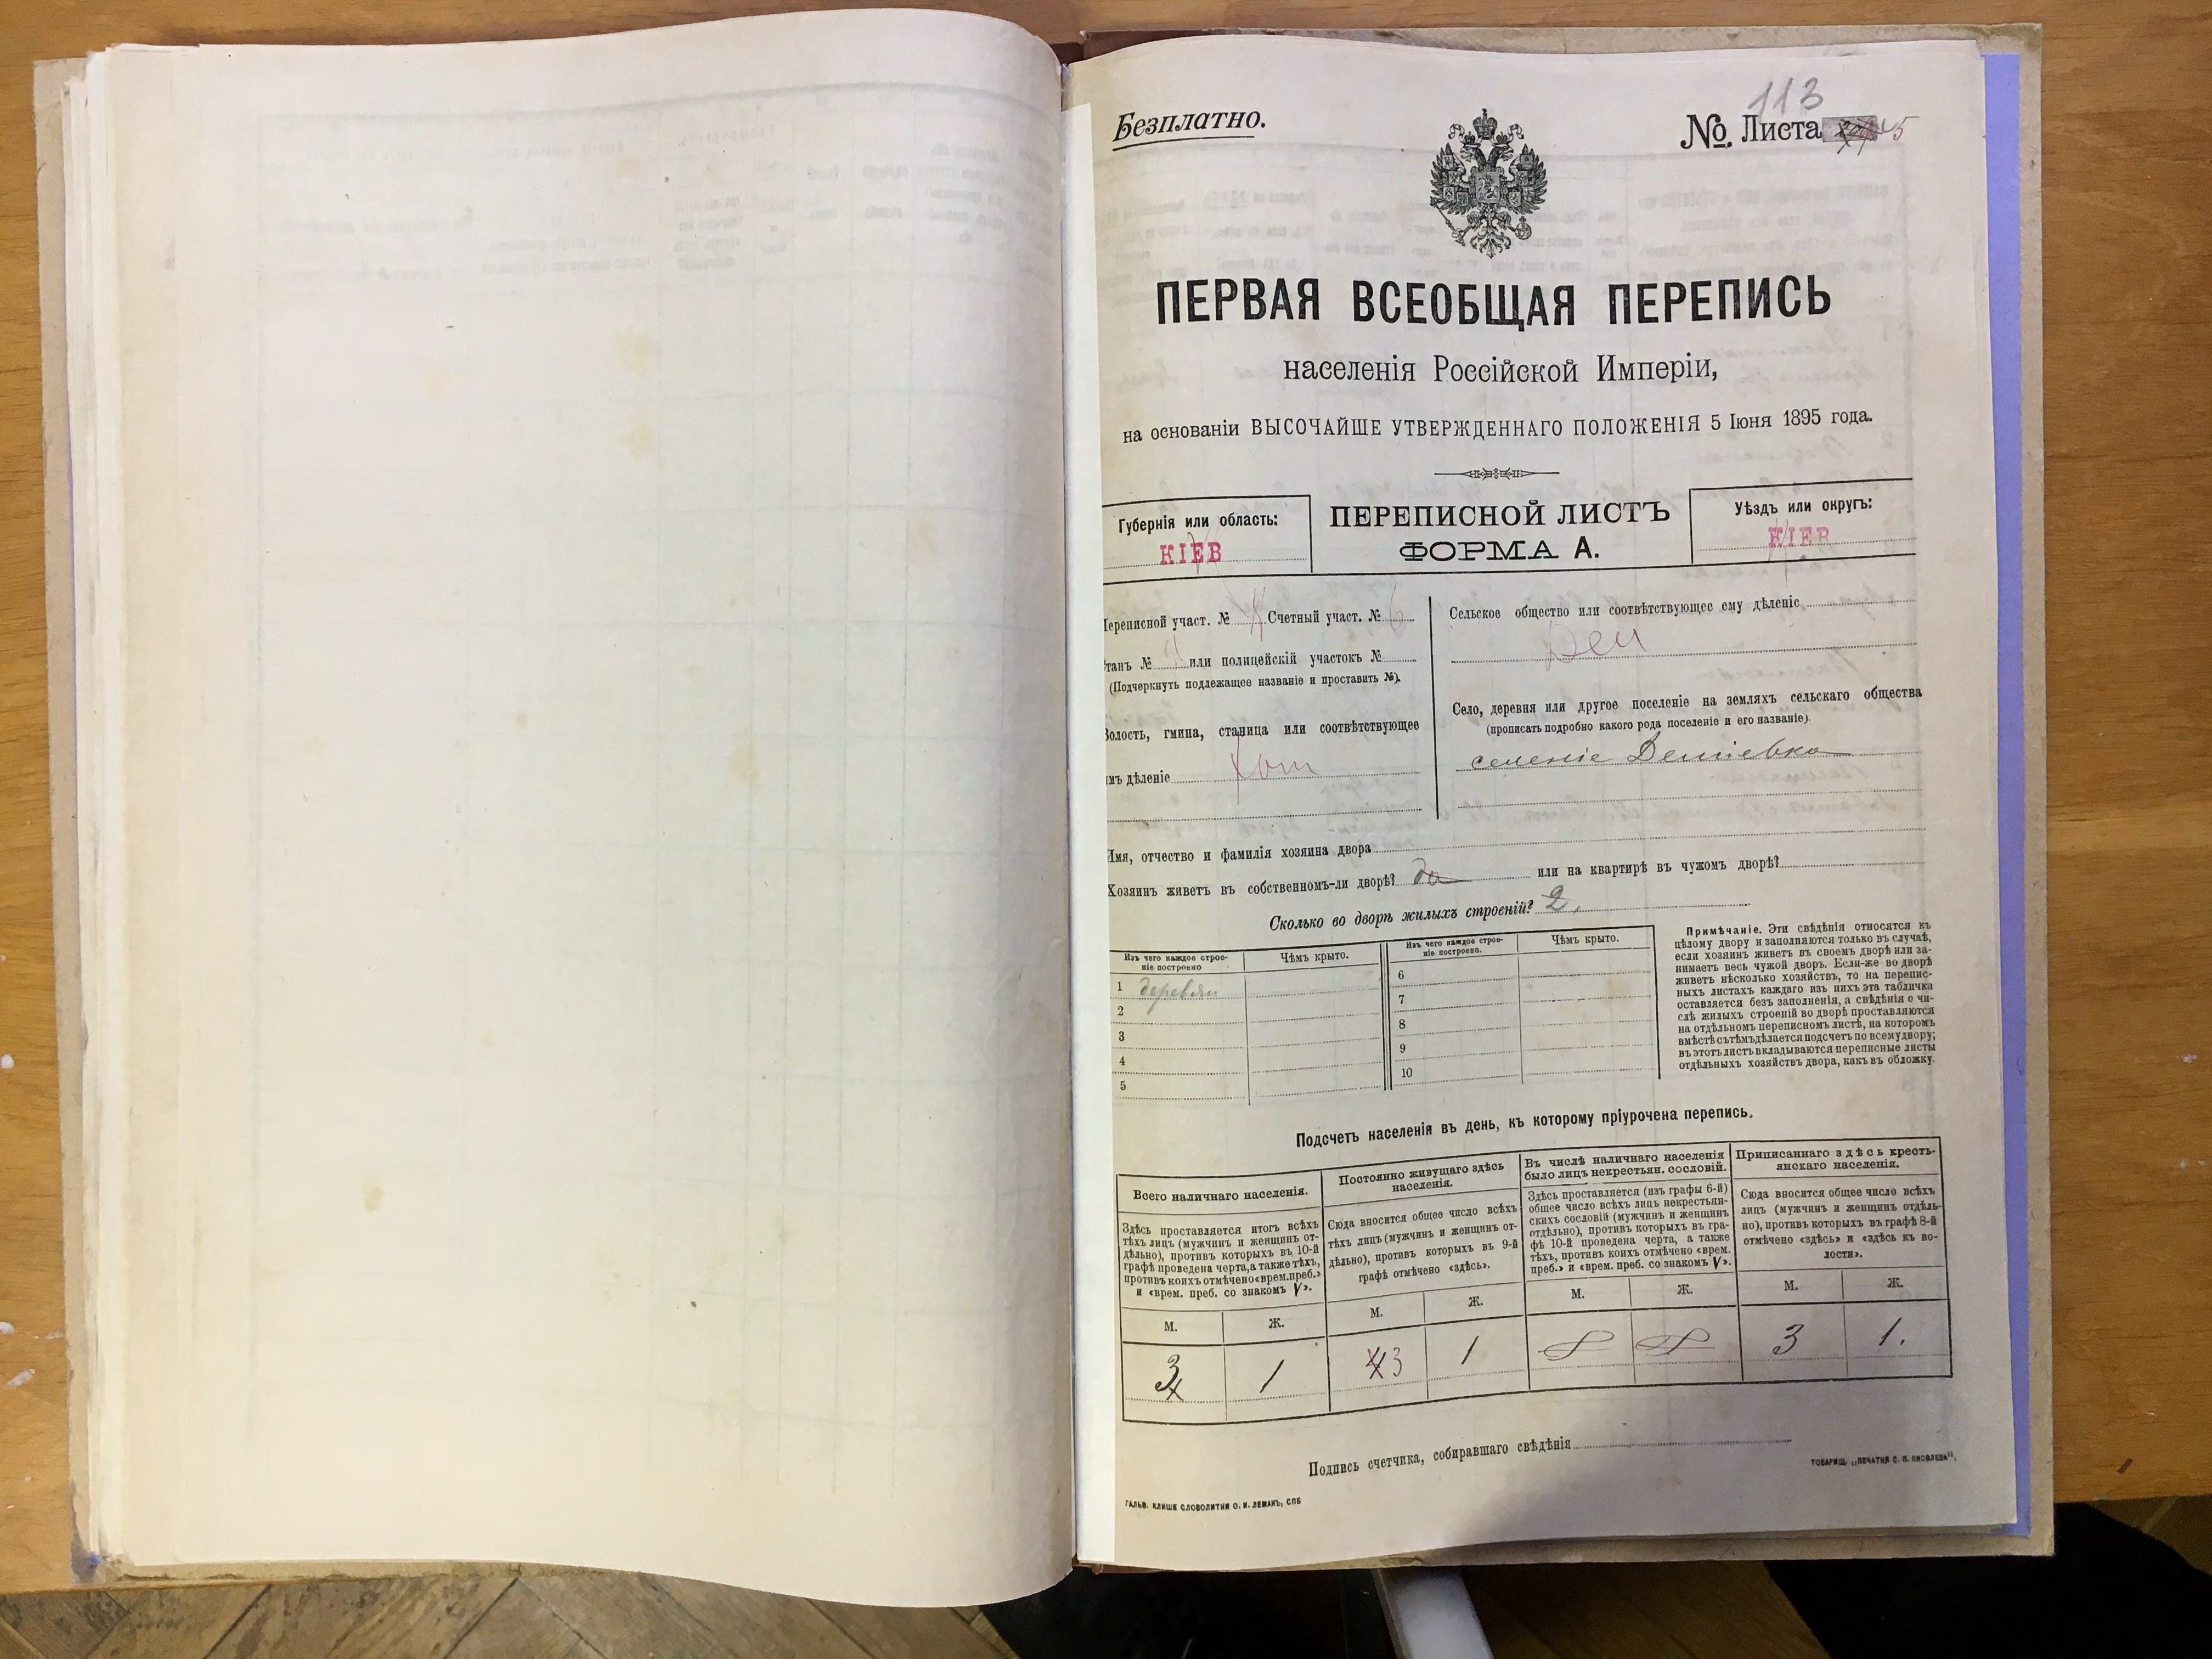 113
Безплатно.
№. Листа 5
ПЕРВАЯ ВСЕОБЩАЯ ПЕРЕПИСЬ
населенія Россійской Имперіи,
на основаніи ВЫСОЧАЙШЕ УТВЕРЖДЕННАГО ПОЛОЖЕНІЯ 5 Іюня 1895 года.
Губернія или область:
КІЕВ
ПЕРЕПИСНОЙ ЛИСТЪ
ФОРМА А.
Уѣздъ или округъ:
КІЕВ
Переписной участ. № Счетный участ. № 6
Станъ № или полицейскій участокъ №
(Подчеркнуть подлежащее названіе и проставить №).
Волость, гмина, станица или соотвѣтствующее
имъ дѣленіе Хот
Сельское общество или соотвѣтствующее ему дѣленіе
Дем
Село, деревня или другое поселеніе на земляхъ сельскаго общества
(прописать подробно какого рода поселеніе и его названіе).
селеніе Деміевка
Имя, отчество и фамилія хозяина двора
Хозяинъ живетъ въ собственномъ-ли дворѣ? да или на квартирѣ въ чужомъ дворѣ?
Сколько во дворѣ жилыхъ строеній? 2.
Изъ чего каждое строе-
ніе построено
Чѣмъ крыто.
1 деревян
2
3
4
5
Изъ чего каждое строе-
ніе построено.
Чѣмъ крыто.
6
7
8
9
10
Примѣчаніе. Эти свѣдѣнія относятся къ
цѣлому двору и заполняются только въ случаѣ,
если хозяинъ живетъ въ своемъ дворѣ или за-
нимаетъ весь чужой дворъ. Если-же во дворѣ
живетъ нѣсколько хозяйствъ, то на перепис-
ныхъ листахъ каждаго изъ нихъ эта табличка
оставляется безъ заполненія, а свѣдѣнія о чи-
слѣ жилыхъ строеній во дворѣ проставляются
на отдѣльномъ переписномъ листѣ, на которомъ
вмѣстѣ съ тѣмъ дѣлается подсчетъ по всему двору;
въ этотъ листъ вкладываются переписные листы
отдѣльныхъ хозяйствъ двора, какъ въ обложку.
Подсчетъ населенія въ день, къ которому пріурочена перепись.
Всего наличнаго населенія.
Здѣсь проставляется итогъ всѣхъ
тѣхъ лицъ (мужчинъ и женщинъ от-
дѣльно), противъ которыхъ въ 10-й
графѣ проведена черта, а также тѣхъ,
противъ коихъ отмѣчено «врем. преб.»
и «врем. преб. со знакомъ V».
М. Ж.
3 1
Постоянно живущаго здѣсь
населенія.
Сюда вносится общее число всѣхъ
тѣхъ лицъ (мужчинъ и женщинъ от-
дѣльно), противъ которыхъ въ 9-й
графѣ отмѣчено «здѣсь».
М. Ж.
3 1
Въ числѣ наличнаго населенія
было лицъ некрестьян. сословій.
Здѣсь проставляется (изъ графы 6-й)
общее число всѣхъ лицъ некрестьян-
скихъ сословій (мужчинъ и женщинъ
отдѣльно), противъ которыхъ въ гра-
фѣ 10-й проведена черта, а также
тѣхъ, противъ коихъ отмѣчено «врем.
преб.» и «врем. преб. со знакомъ V».
М. Ж.
Приписаннаго здѣсь кресть-
янскаго населенія.
Сюда вносится общее число всѣхъ
лицъ (мужчинъ и женщинъ отдѣль-
но), противъ которыхъ въ графѣ 8-й
отмѣчено «здѣсь» и «здѣсь къ во-
лости».
М. Ж.
3 1.
Подпись счетчика, собиравшаго свѣдѣнія
ГАЛЬВ. КЛИШЕ СЛОВОЛИТНИ О. И. ЛЕМАНЪ, СПБ
ТОВАРИЩ. „ПЕЧАТНЯ С. П. ЯКОВЛЕВА".